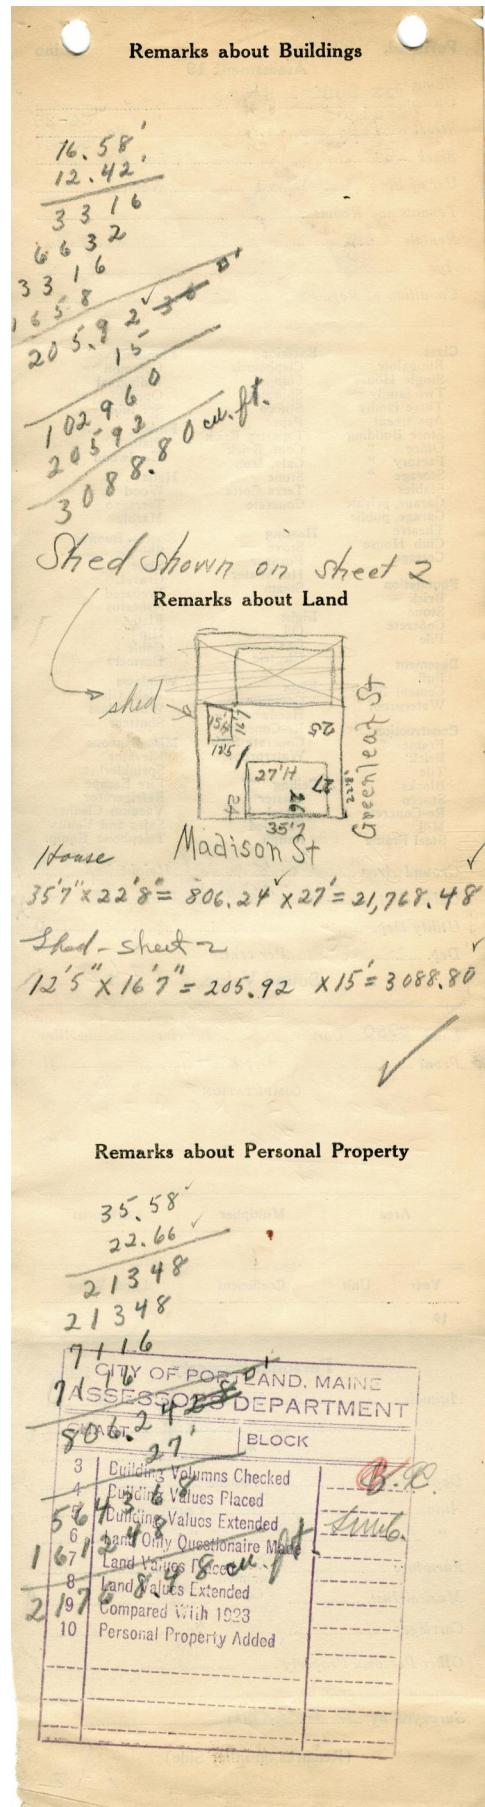 Remarks about Buildings
16.58'
12.42'
3316
6632
3316
1658
205.92 36 □'
15
102960
20592
3088.80 cu. ft.
Shed shown on sheet 2
Remarks about Land
shed
15'H
16'7
12'5
25
27'H
27
26
24
22'8"
35'7
Greenleaf St
Madison St
House
35'7" x 22'8" = 806.24 x 27' = 21,768.48
Shed - sheet 2
12'5" x 16'7" = 205.92 x 15' = 3088.80
Remarks about Personal Property
35.58'
22.66
21348
21348
7116
7116
806.2428 □'
27'
564368
161248
21768.48 cu. ft.
CITY OF PORTLAND, MAINE
ASSESSORS DEPARTMENT
CHART BLOCK
3 Building Volumns Checked
4 Building Values Placed
5 Building Values Extended
6 Land Only Questionaire Made
7 Land Values Placed
8 Land Values Extended
9 Compared With 1923
10 Personal Property Added